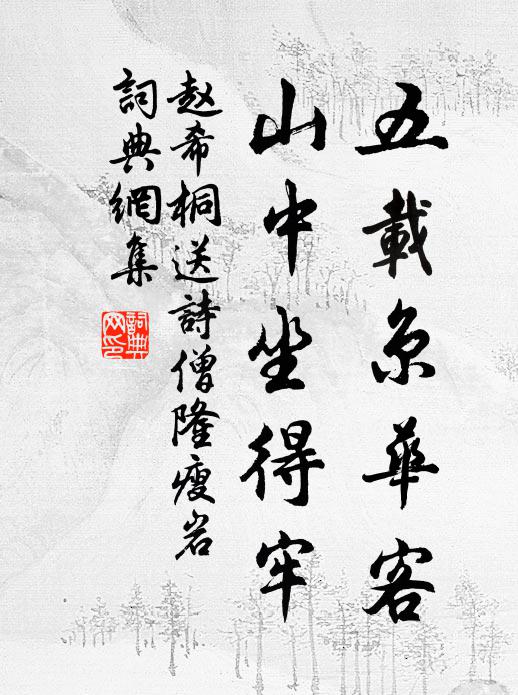 五載京華客
山中坐得牢
赵希桐送詩僧隆瘦岩
詞典網集
詞典
网印